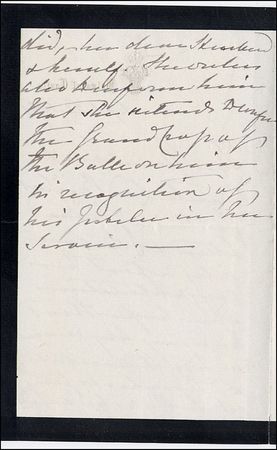 did, her dear Husband
& herself. She wishes
also to inform him
that she intends to confer
the Grand Cross of
the Bath on him
in recognition of
his Jubilee in her
Service. —